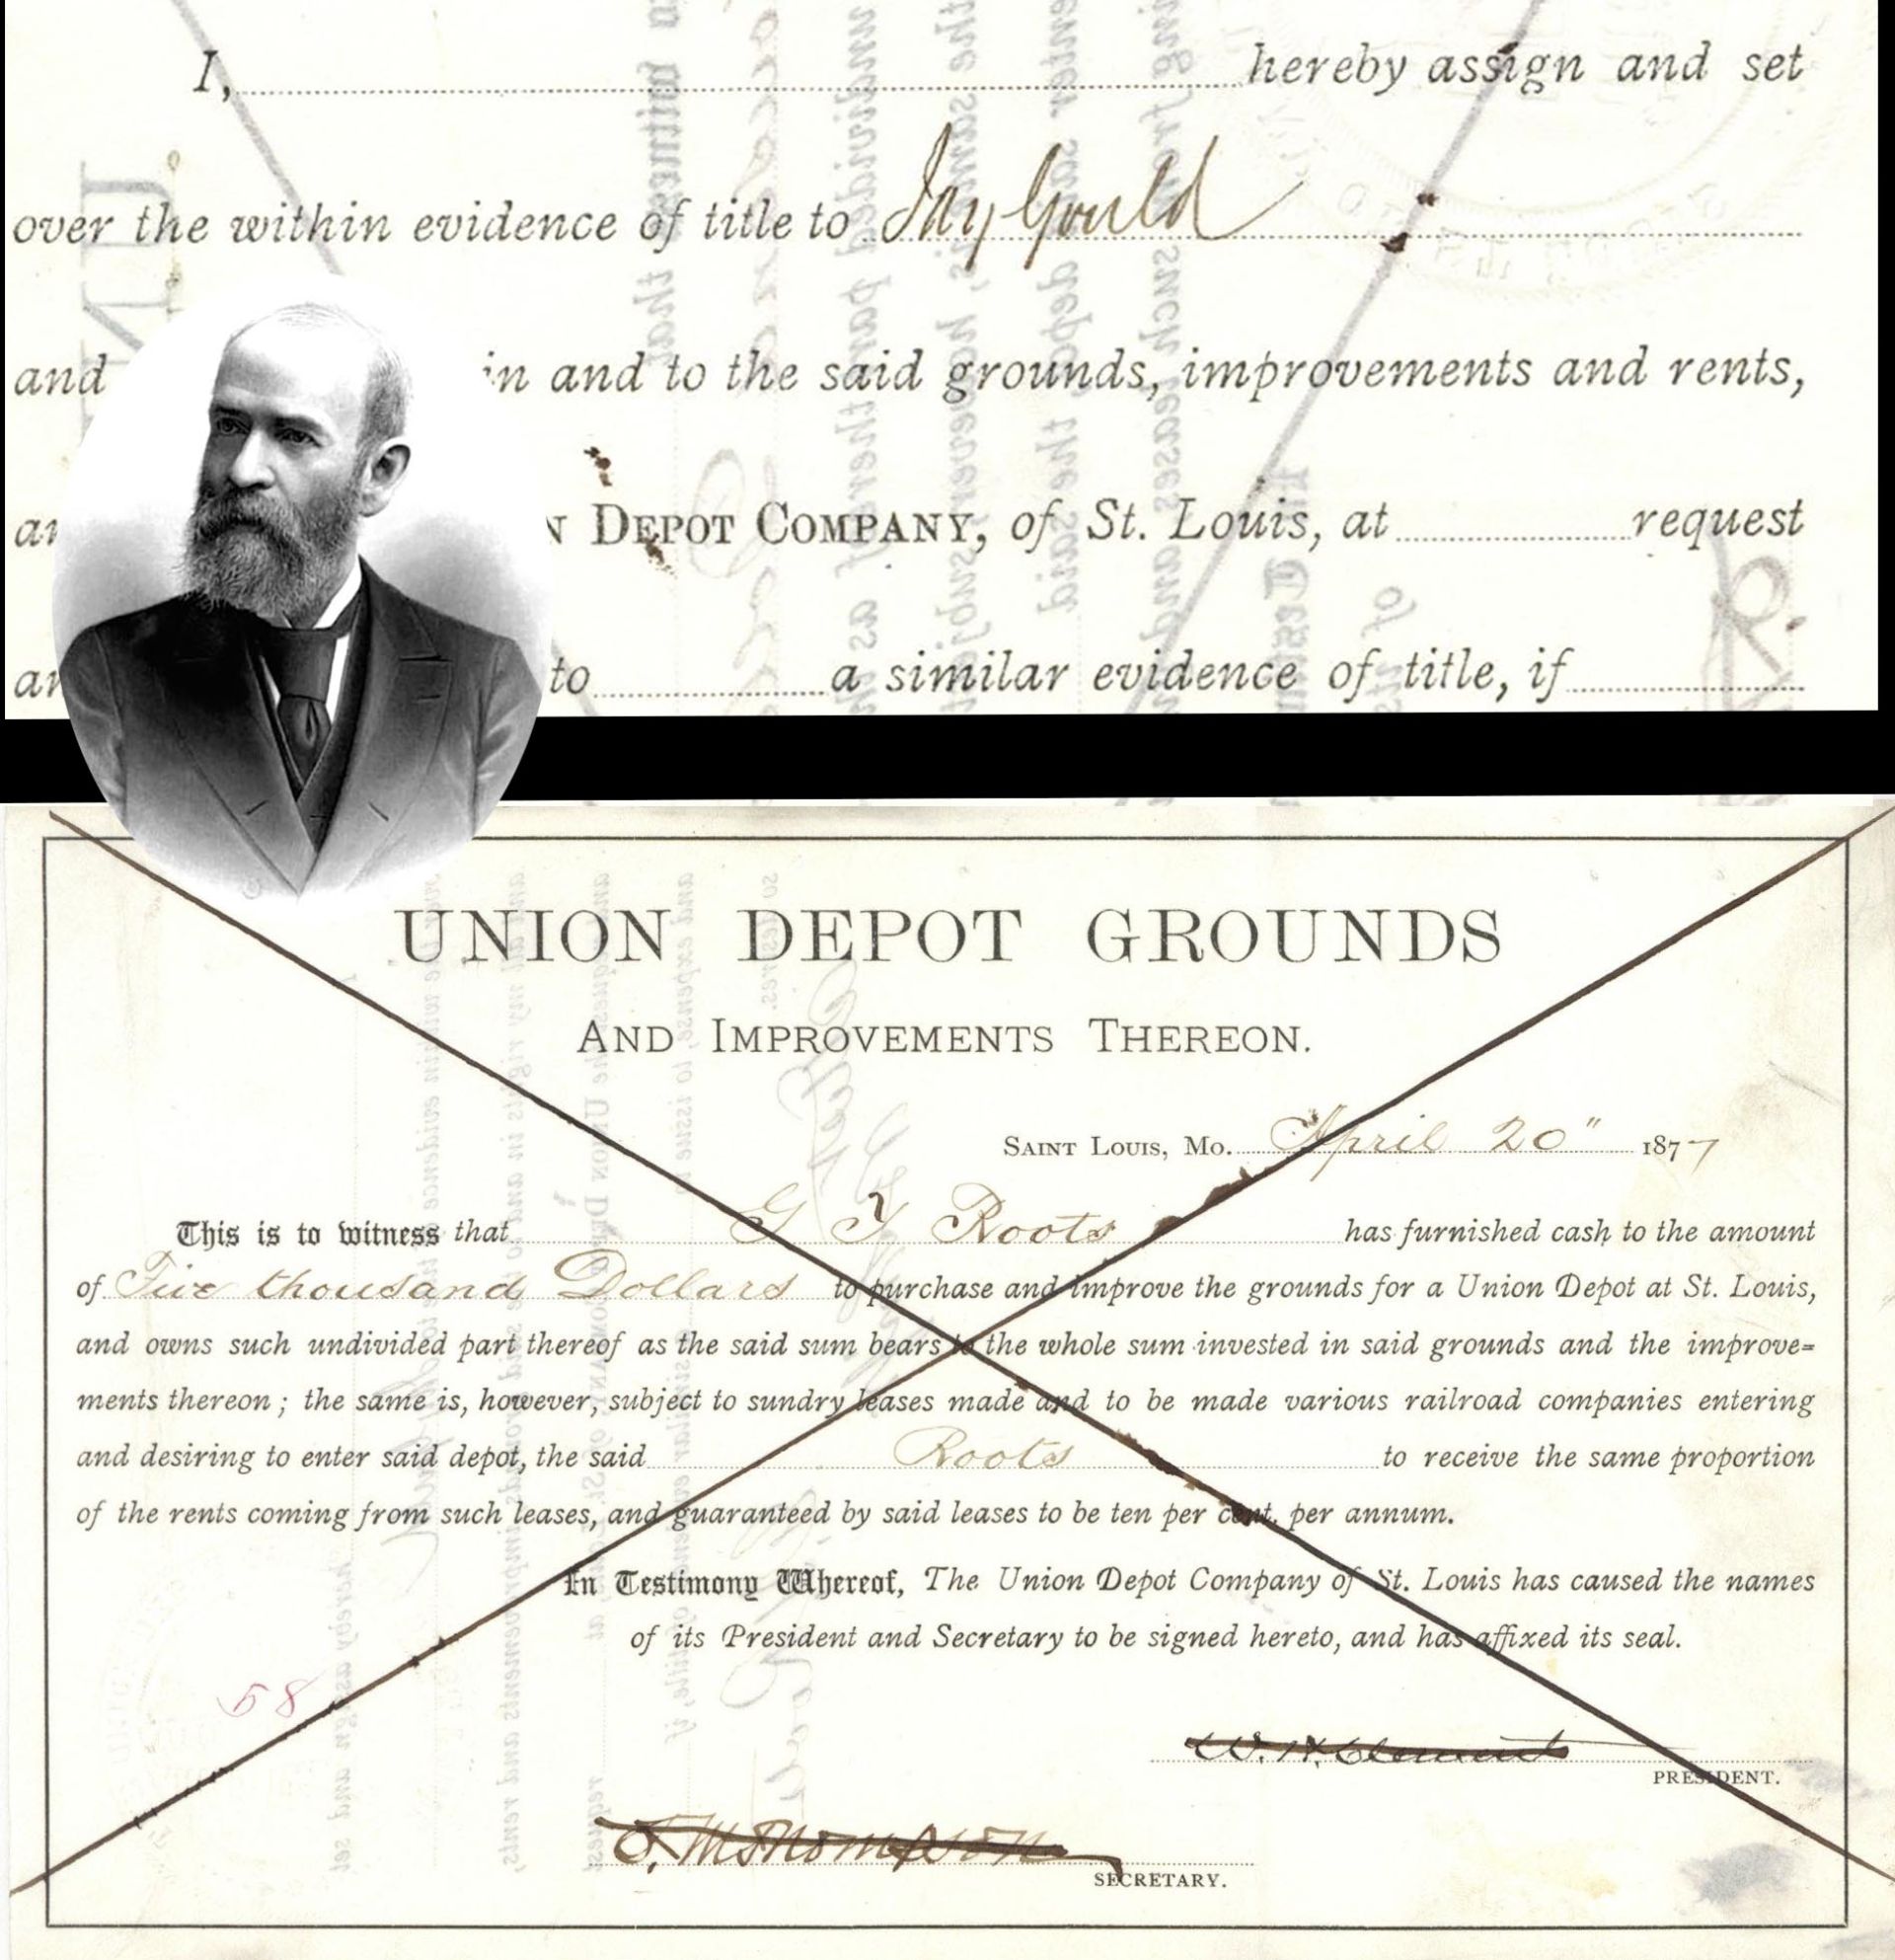 I, hereby assign and set
over the within evidence of title to Jay Gould
and in and to the said grounds, improvements and rents,
DEPOT COMPANY, of St. Louis, at request
to a similar evidence of title, if
UNION DEPOT GROUNDS
AND IMPROVEMENTS THEREON.
SAINT LOUIS, Mo. April 20" 1877
This is to witness that G Y Roots has furnished cash to the amount
of Five thousand Dollars to purchase and improve the grounds for a Union Depot at St. Louis,
and owns such undivided part thereof as the said sum bears to the whole sum invested in said grounds and the improve=
ments thereon; the same is, however, subject to sundry leases made and to be made various railroad companies entering
and desiring to enter said depot, the said Roots to receive the same proportion
of the rents coming from such leases, and guaranteed by said leases to be ten per cent. per annum.
In Testimony Whereof, The Union Depot Company of St. Louis has caused the names
of its President and Secretary to be signed hereto, and has affixed its seal.
58
W. H. Clement
PRESIDENT.
S. M Thompson
SECRETARY.